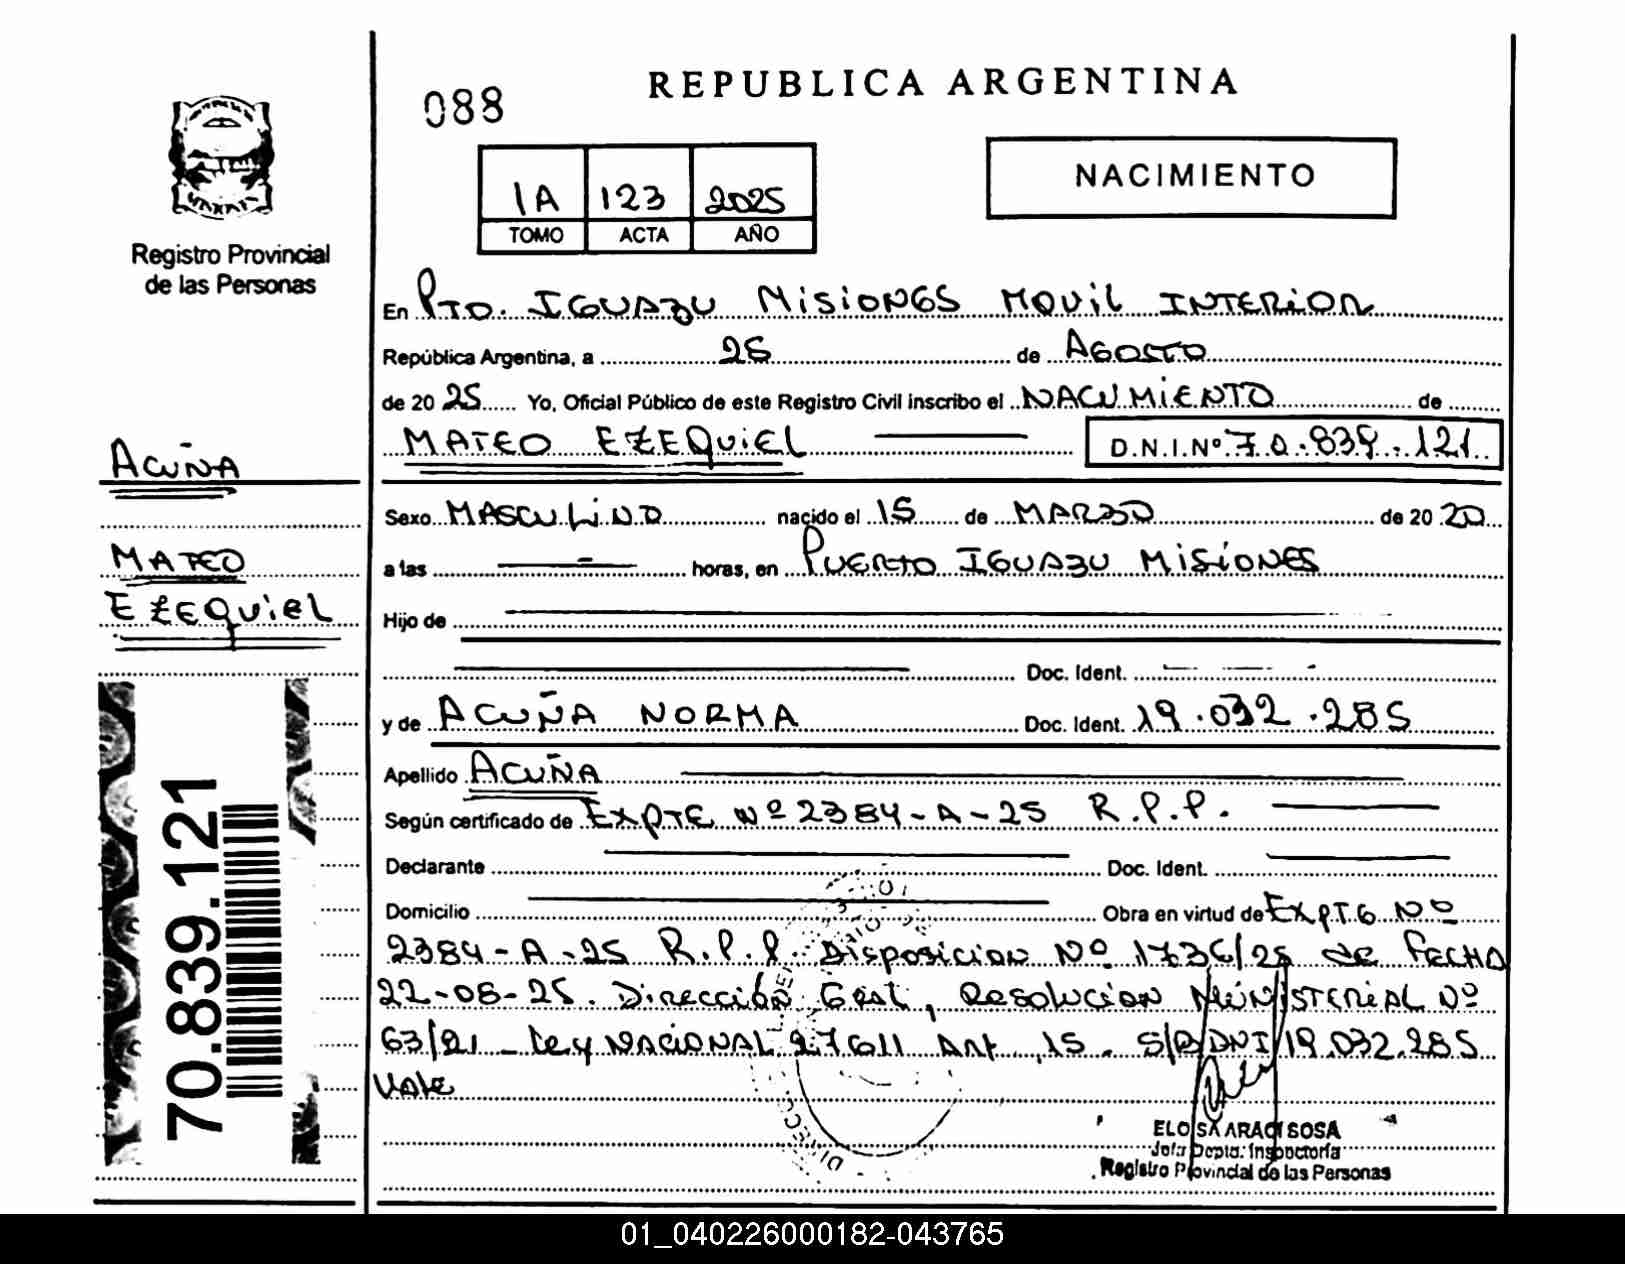 REPUBLICA ARGENTINA
088
NACIMIENTO
1A 123 2025
TOMO ACTA AÑO
Registro Provincial
de las Personas
En Pto. IGUAZU MISIONES MOVIL INTERIOR
República Argentina, a 25 de AGOSTO
de 2025 Yo, Oficial Público de este Registro Civil inscribo el NACIMIENTO de
MATEO EZEQUIEL D.N.I.Nº 70.839.121
ACUÑA
MATEO
EZEQUIEL
70.839.121
Sexo MASCULINO nacido el 15 de MARZO de 2020
a las horas, en PUERTO IGUAZU MISIONES
Hijo de
Doc. Ident.
y de ACUÑA NORMA Doc. Ident. 19.032.285
Apellido ACUÑA
Según certificado de EXPTE Nº 2384-A-25 R.P.P.
Declarante Doc. Ident.
Domicilio Obra en virtud de EXPTE Nº
2384-A-25 R.P.P. Disposicion Nº 1736/25 de FECHA
22-08-25. Dirección Gral, Resolucion Ministerial Nº
63/21 - Ley NACIONAL 27611 Art 15. S/R DNI 19.032.285
Vale
ELOISA ARACI SOSA
Jefa Depto. Inspectoría
Registro Provincial de las Personas
01_040226000182-043765